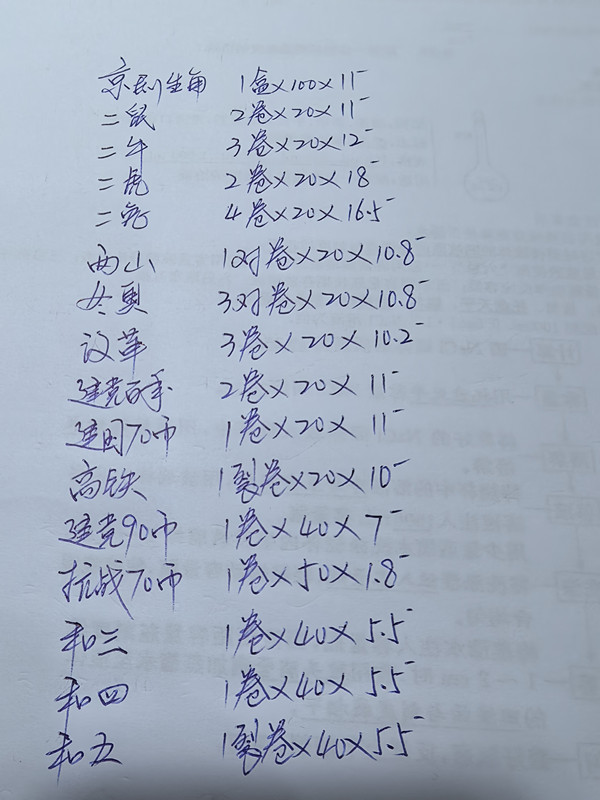 京剧生角 1盒×100×11-
二鼠 2卷×20×11-
二牛 3卷×20×12-
二虎 2卷×20×18-
二兔 4卷×20×16.5-
两山 1对卷×20×10.8-
冬奥 3对卷×20×10.8-
改革 3卷×20×10.2-
建党百年 2卷×20×11-
建国70币 1卷×20×11-
高铁 1裂卷×20×10-
建党90币 1卷×40×7-
抗战70币 1卷×50×1.8-
和三 1卷×40×5.5-
和四 1卷×40×5.5-
和五 1裂卷×40×5.5-